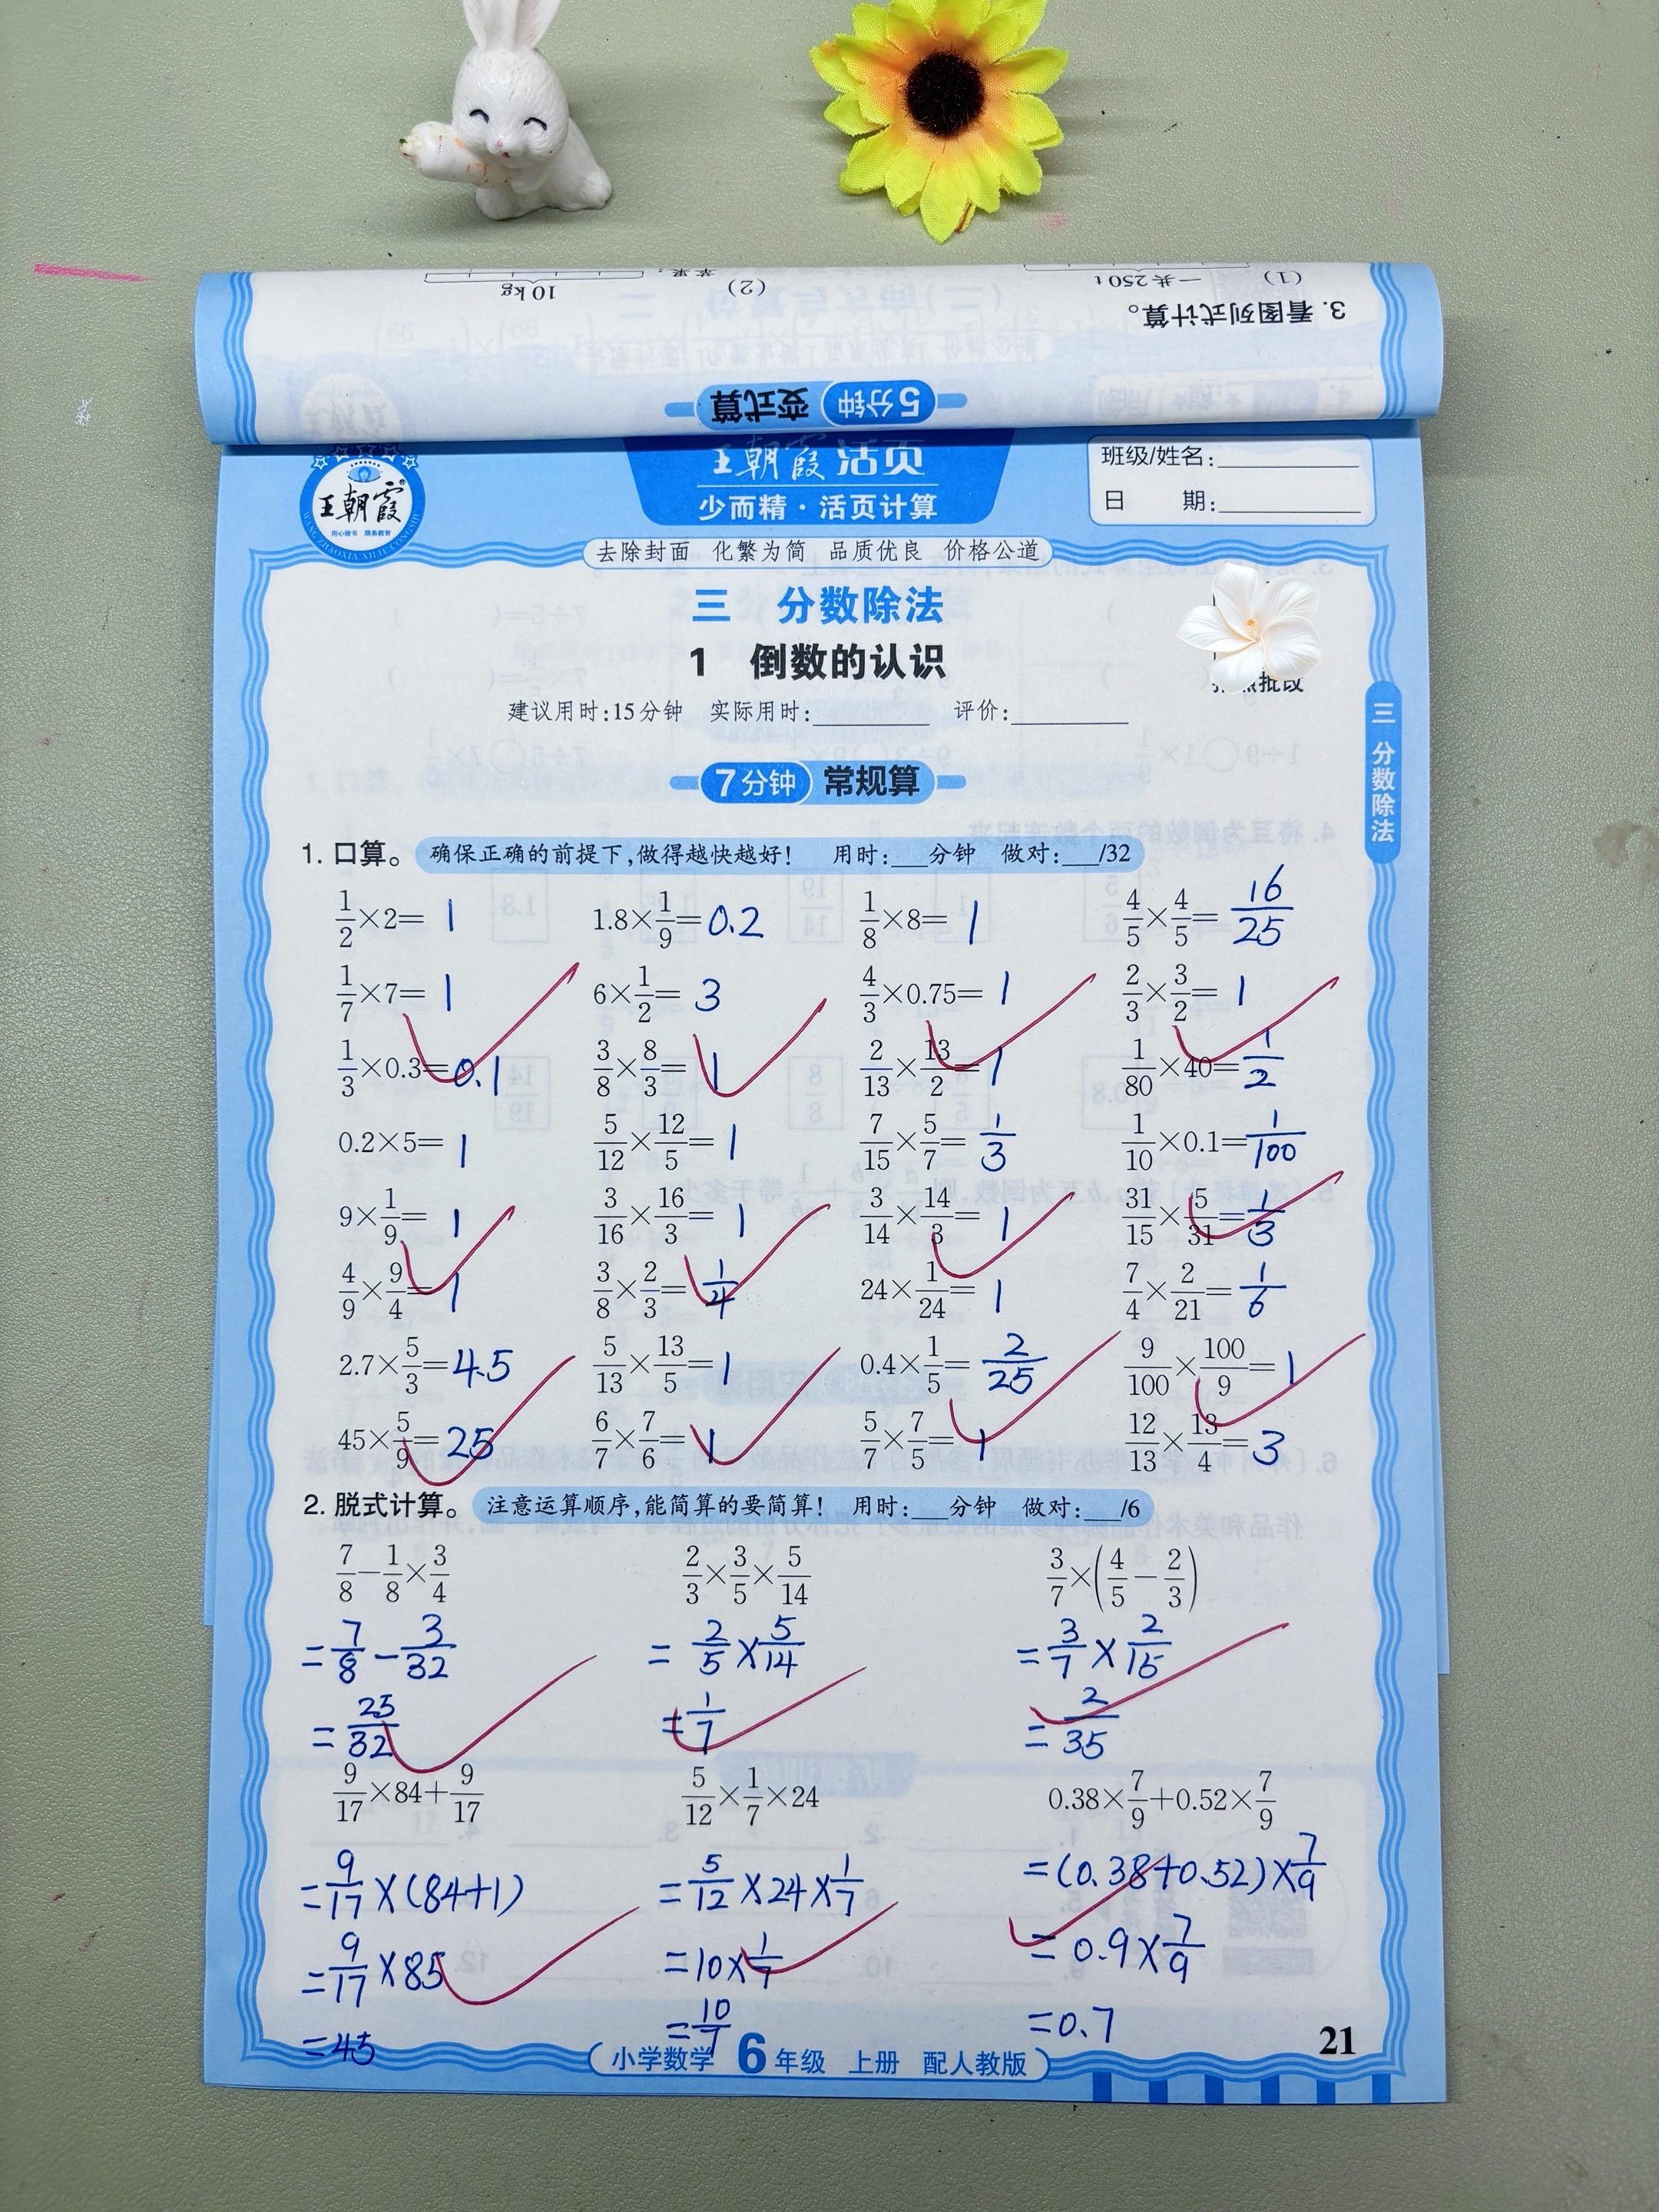 3. 看图列式计算。
(1) 一共250t
(2) 苹果:
10kg
5分钟 变式算
王朝霞®
用心做书 服务教育
WANG ZHAOXIA XILIE CONGSHU
王朝霞 活页
少而精·活页计算
班级/姓名:
日 期:
去除封面 化繁为简 品质优良 价格公道
三 分数除法
1 倒数的认识
建议用时:15分钟 实际用时: 评价:
三 分数除法
7分钟 常规算
1. 口算。 确保正确的前提下,做得越快越好! 用时:___分钟 做对:___/32
1/2×2= 1 1.8×1/9=0.2 1/8×8= 1 4/5×4/5= 16/25
1/7×7= 1 6×1/2= 3 4/3×0.75= 1 2/3×3/2= 1
1/3×0.3=0.1 3/8×8/3= 1 2/13×13/2= 1 1/80×40=1/2
0.2×5= 1 5/12×12/5= 1 7/15×5/7= 1/3 1/10×0.1=1/100
9×1/9= 1 3/16×16/3= 1 3/14×14/3= 1 31/15×5/31=1/3
4/9×9/4= 1 3/8×2/3= 1/4 24×1/24= 1 7/4×2/21=1/6
2.7×5/3=4.5 5/13×13/5=1 0.4×1/5= 2/25 9/100×100/9=1
45×5/9=25 6/7×7/6= 1 5/7×7/5= 1 12/13×13/4=3
2. 脱式计算。 注意运算顺序,能简算的要简算! 用时:___分钟 做对:___/6
7/8−1/8×3/4 2/3×3/5×5/14 3/7×(4/5−2/3)
=7/8−3/32 =2/5×5/14 =3/7×2/15
=25/32 =1/7 =2/35
9/17×84+9/17 5/12×1/7×24 0.38×7/9+0.52×7/9
=9/17×(84+1) =5/12×24×1/7 =(0.38+0.52)×7/9
=9/17×85 =10×1/7 =0.9×7/9
=45 =10/7 =0.7
小学数学 6年级 上册 配人教版
21